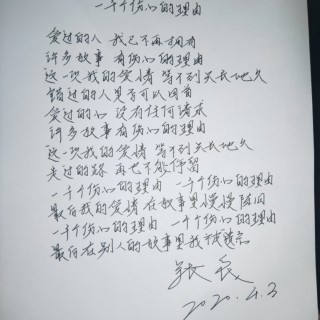 一千个伤心的理由
爱过的人 我已不再拥有
许多故事 有伤心的理由
这一次我的爱情 等不到天长地久
错过的人是否可以回首
爱过的心 没有任何请求
许多故事有伤心的理由
这一次我的爱情 等不到天长地久
走过的路 再也不能停留
一千个伤心的理由 一千个伤心的理由
最后我的爱情 在故事里慢慢陈旧
一千个伤心的理由 一千个伤心的理由
最后在别人的故事里我被遗忘
2020.4.3